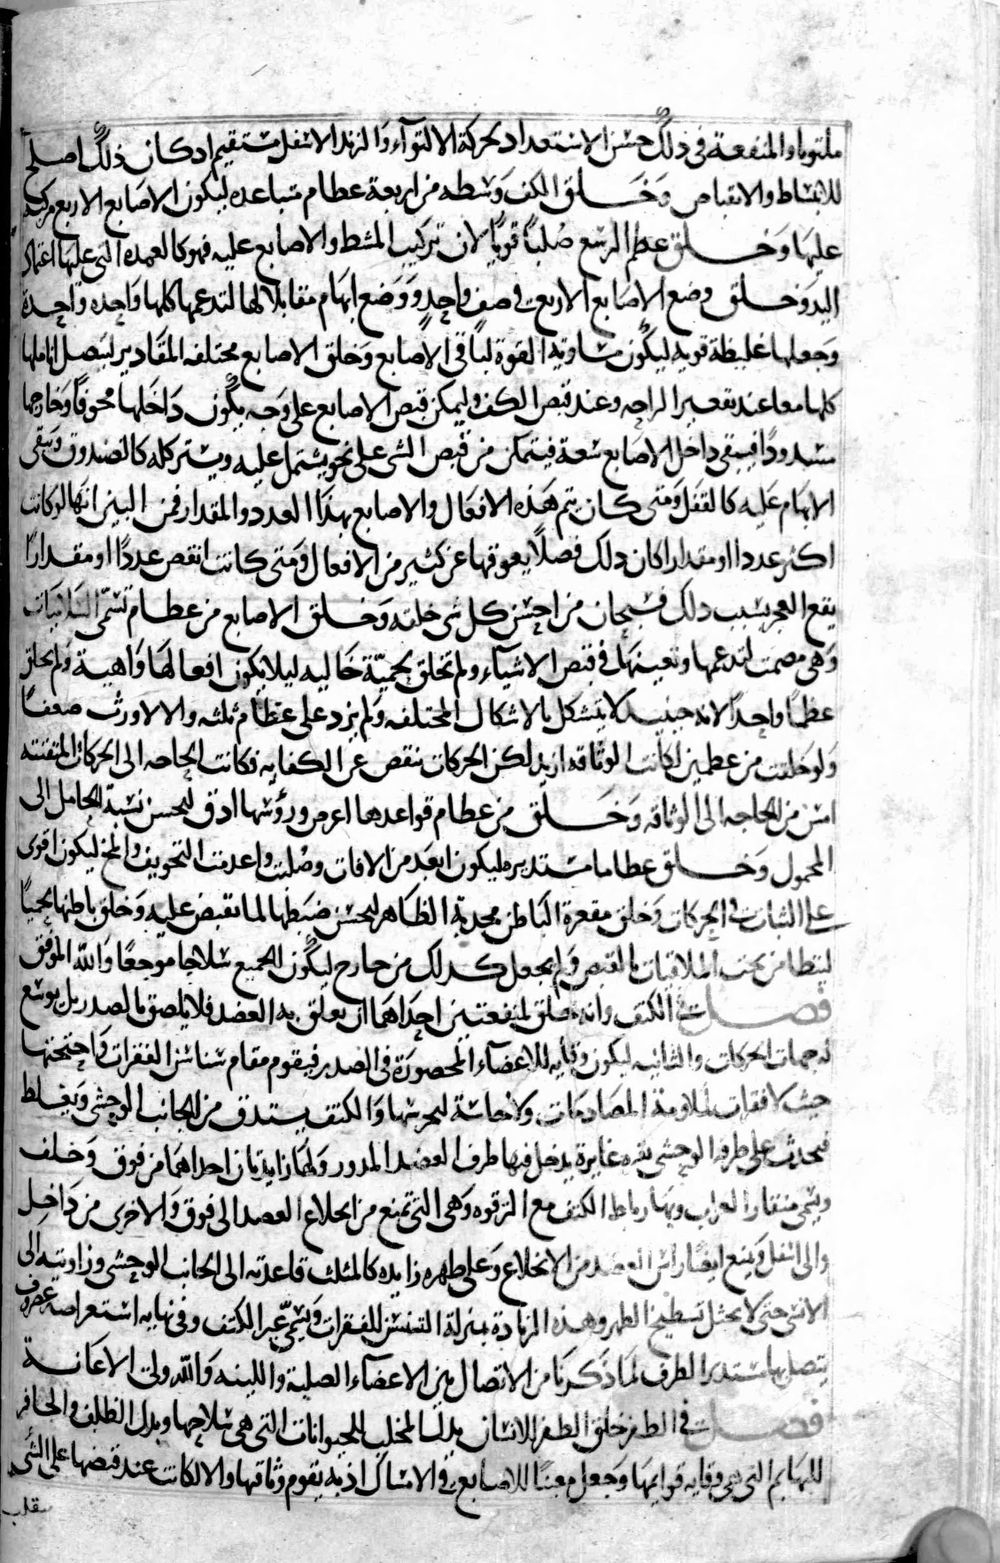 ملتويا والمنفعة في ذلك حسن الاستعداد لحركة الالتوآء والزند الاسفل مستقيم اذ كان ذلك اصلح
للانبساط والانقباض وخلق الكف وسطه من اربعة عظام متباعده ليكون الاصابع الاربع مركبه
عليها وخلق عظم الرسغ صلبًا قويًا لان تركيب المشط والاصابع عليه فهو كالعمده التي عليها اعتماد
اليد وخلق وضع الاصابع الاربع في صف واحد ووضع ابهام مقابلا لها لتدعمها كلها واحده واحدة
وجعلها غليظة قويه ليكون مساوية القوة لباقي الاصابع وخلق الاصابع مختلفه المقادير ليتصل اناملها
كلها معا عند تقعير الراحه وعند قبض الكف وليمكن قبض الاصابع على وجه يكون داخلها مجوفًا وخارجها
مسدودًا فيبقى داخل الاصابع سعة فيتمكن من قبض الشى على نحو يشتمل عليه ويستر كله كالصندوق ويبقى
الابهام عليه كالقفل ومتى كان يتم هذه الافعال والاصابع بهذا العدد والمقدار فمن البين انها لو كانت
اكثر عددا او مقدارا كان ذلك فضلًا يعوقها عن كثير من الافعال ومتى كانت انقص عددًا او مقدارًا
يقع العجز بسبب ذلك فسبحان من احسن كل شى خلقه وخلق الاصابع من عظام تسمى السلاميات
وهى مصمت لتدعمها وتعينها في قبض الاشيآء ولم تخلق لحميّة خاليه ليلا يكون افعالها واهية ولم يخلق
عظمًا واحدًا لانه حينيذ لا يتشكل بالاشكال المختلفه ولم يزد على عظام ثلثه والا لاورثت ضعفًا
ولو خلقت من عظمين لكانت الوثاقه ازيد لكن الحركات تنقص عن الكفايه فكانت الحاجه الى الحركات المتفننه
امس من الحاجه الى الوثاقه وخلق من عظام قواعدها اعرض ورؤسها ادق ليحسن نسبة الحامل الى
المحمول وخلق عظاما مستديره ليكون ابعد من الافات وصلبت واعدمت التجويف والمخ ليكون اقوى
على الثبات في الحركات وخلق مقعرة الباطن محدبة الظاهر ليحسن ضبطها لما تقبض عليه وخلق باطنها لحميًا
ليتطامن تحت الملاقيات بالقبض ولم يجعل كذلك من خارج ليكون للجميع سلاحا موجعًا والله الموفق
فصل في الكتف وانه خلق لمنفعتين احداهما ان يعلق به العضد فلا يلصق بالصدر بل يوسع
له جهات الحركات والثانيه ليكون وقايه للاعضآء المحصورة في الصدر فيقوم مقام سناسن الفقرات واجنحتها
حيث لا فقرات لمقاومة المصادمات ولا حاسة لحرستها والكتف يستدق من الجانب الوحشي ويغلظ
فيحدث على طرفه الوحشي نقره غايرة يدخل فيها طرف العضد المدور ولها زايدتان احداهما من فوق وخلف
ويسمى منقار الغراب وبها رباط الكتف مع الترقوه وهى التي تمنع من انخلاع العضد الى فوق والاخرى من داخل
والى اسفل وتمنع ايضا راس العضد من الانخلاع وعلى ظهره زايده كالمثلث قاعدته الى الجانب الوحشي وزاويته الى
الانسي حتى لا يختل تسطيح الظهر وهذه الزيادة بمنزلة السنسن للفقرات ويسمى عير الكتف وفي نهايه استعراضه غضروف
يتصل بها مستدير الطرف لما ذكرنا من الاتصال بين الاعضاء الصلبة واللينه والله ولى الاعانة
فصل في الظفر خلق الظفر للانسان بدل المخلب للحيوانات التي هى سلاحها وبدل الظلف والحافر
للبهايم التي هى وقايه قوايمها وجعل معينًا للاصابع في الامساك اذ به يقوم وثاقتها والا لكانت عند قبضها على الشى
سقلب